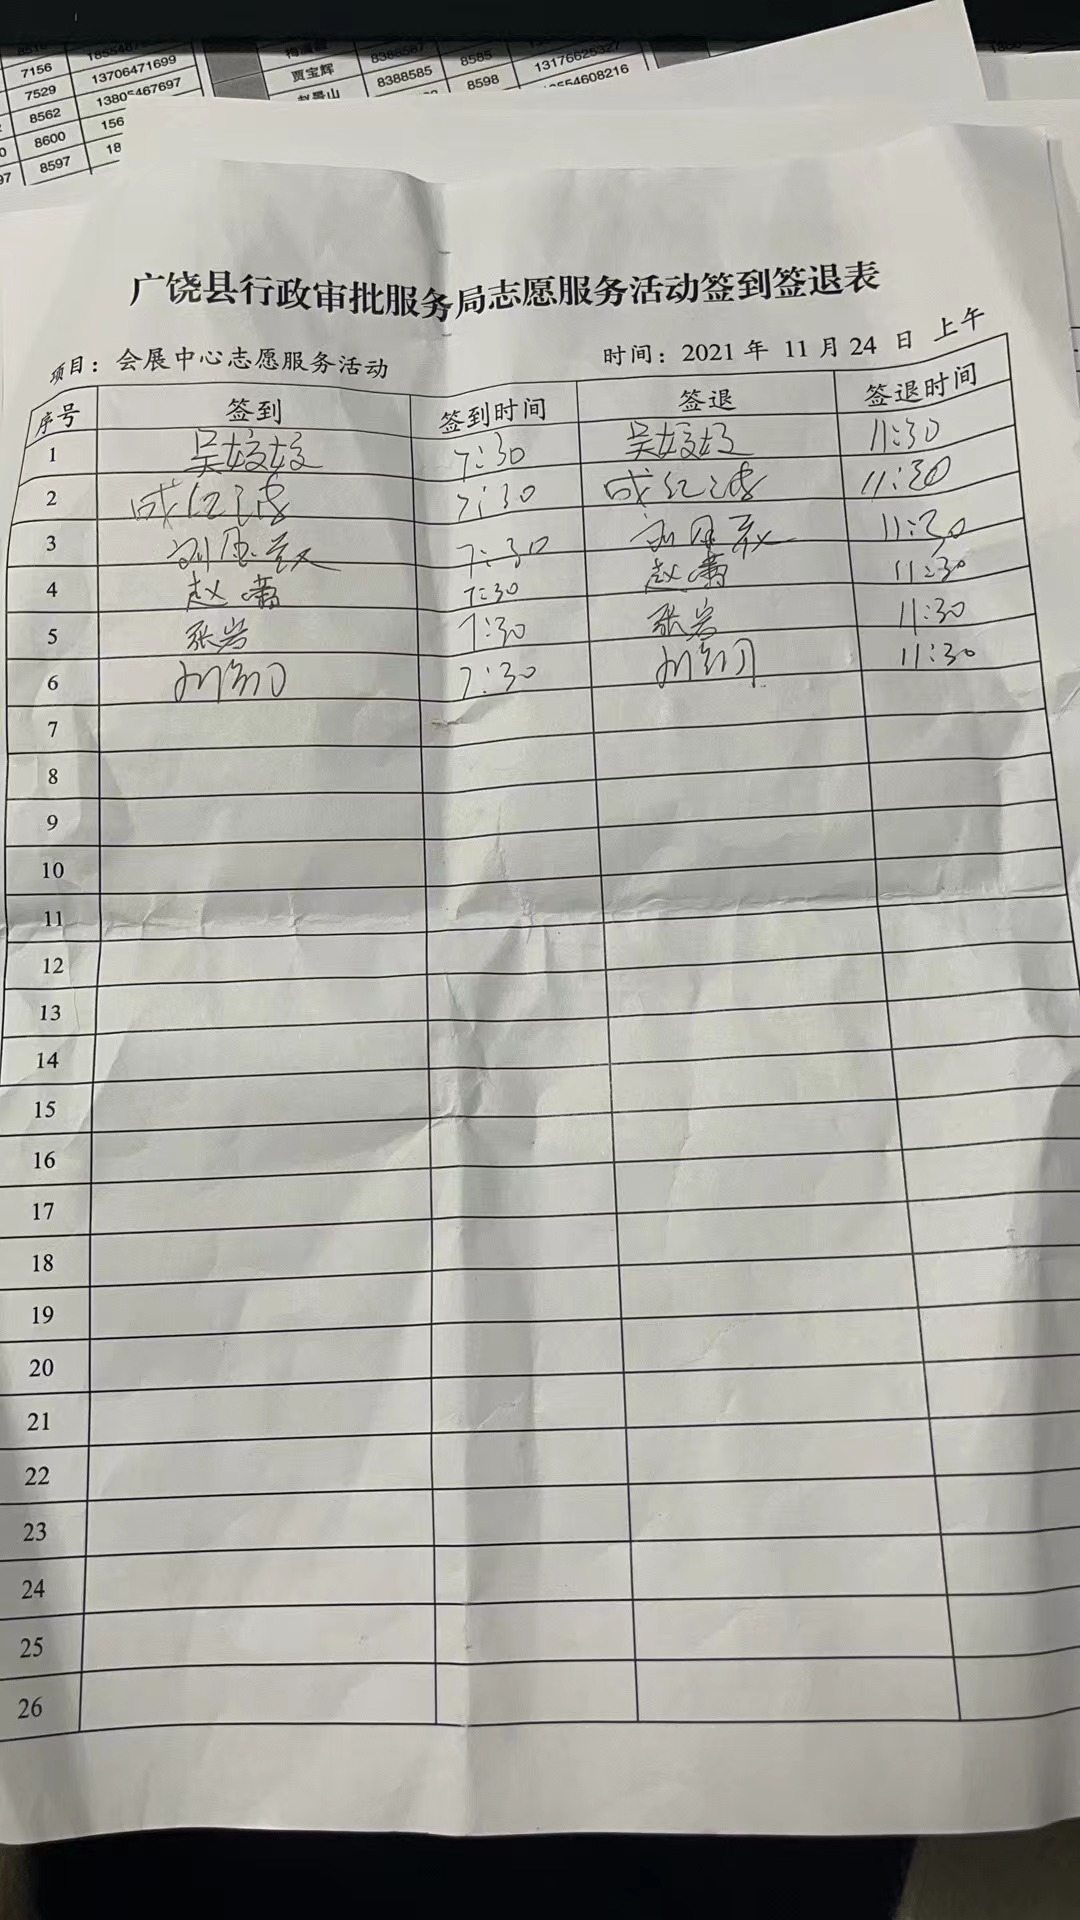 7156 13706471699
7529 13805467697
8562 156
8600 18
8597
贾宝辉 8388585 8598 13176625327
8585
广饶县行政审批服务局志愿服务活动签到签退表
项目：会展中心志愿服务活动 时间：2021年 11月24日 上午
序号 签到 签到时间 签退 签退时间
1 吴姣姣 7:30 吴姣姣 11:30
2 成红波 7:30 成红波 11:30
3 7:30 11:30
4 赵 7:30 赵 11:30
5 张岩 7:30 张岩 11:30
6 7:30 11:30
7
8
9
10
11
12
13
14
15
16
17
18
19
20
21
22
23
24
25
26